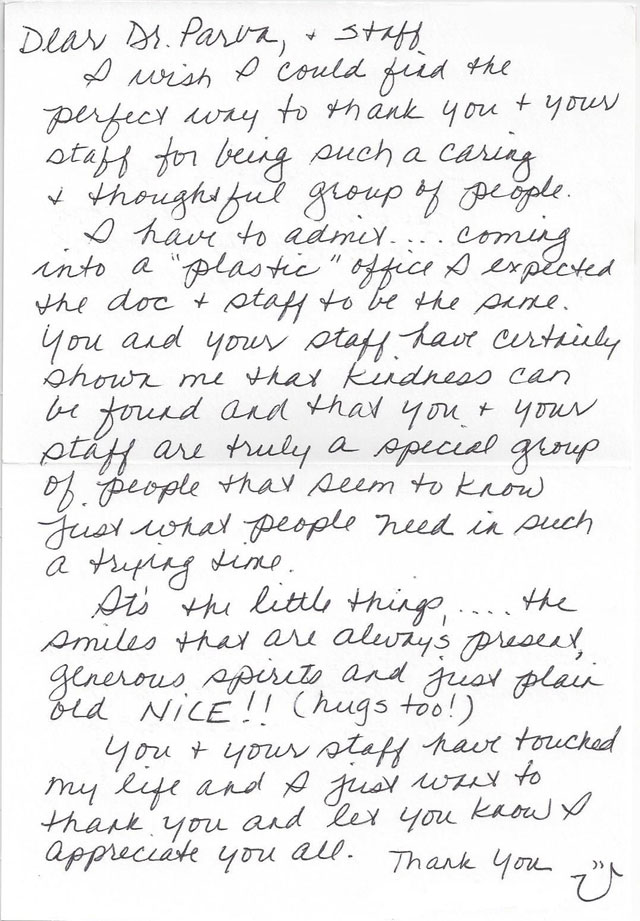 Dear Dr. Parva, + staff
I wish I could find the
perfect way to thank you + your
staff for being such a caring
+ thoughtful group of people.
I have to admit.... coming
into a "plastic" office I expected
the doc + staff to be the same.
You and your staff have certainly
shown me that kindness can
be found and that you + your
staff are truly a special group
of people that seem to know
just what people need in such
a trying time.
It's the little things,.... the
smiles that are always present,
generous spirits and just plain
old NICE!! (hugs too!)
You + your staff have touched
my life and I just want to
thank you and let you know I
appreciate you all. Thank you